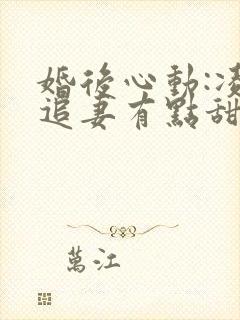 婚後心動:
追妻有點甜
萬江